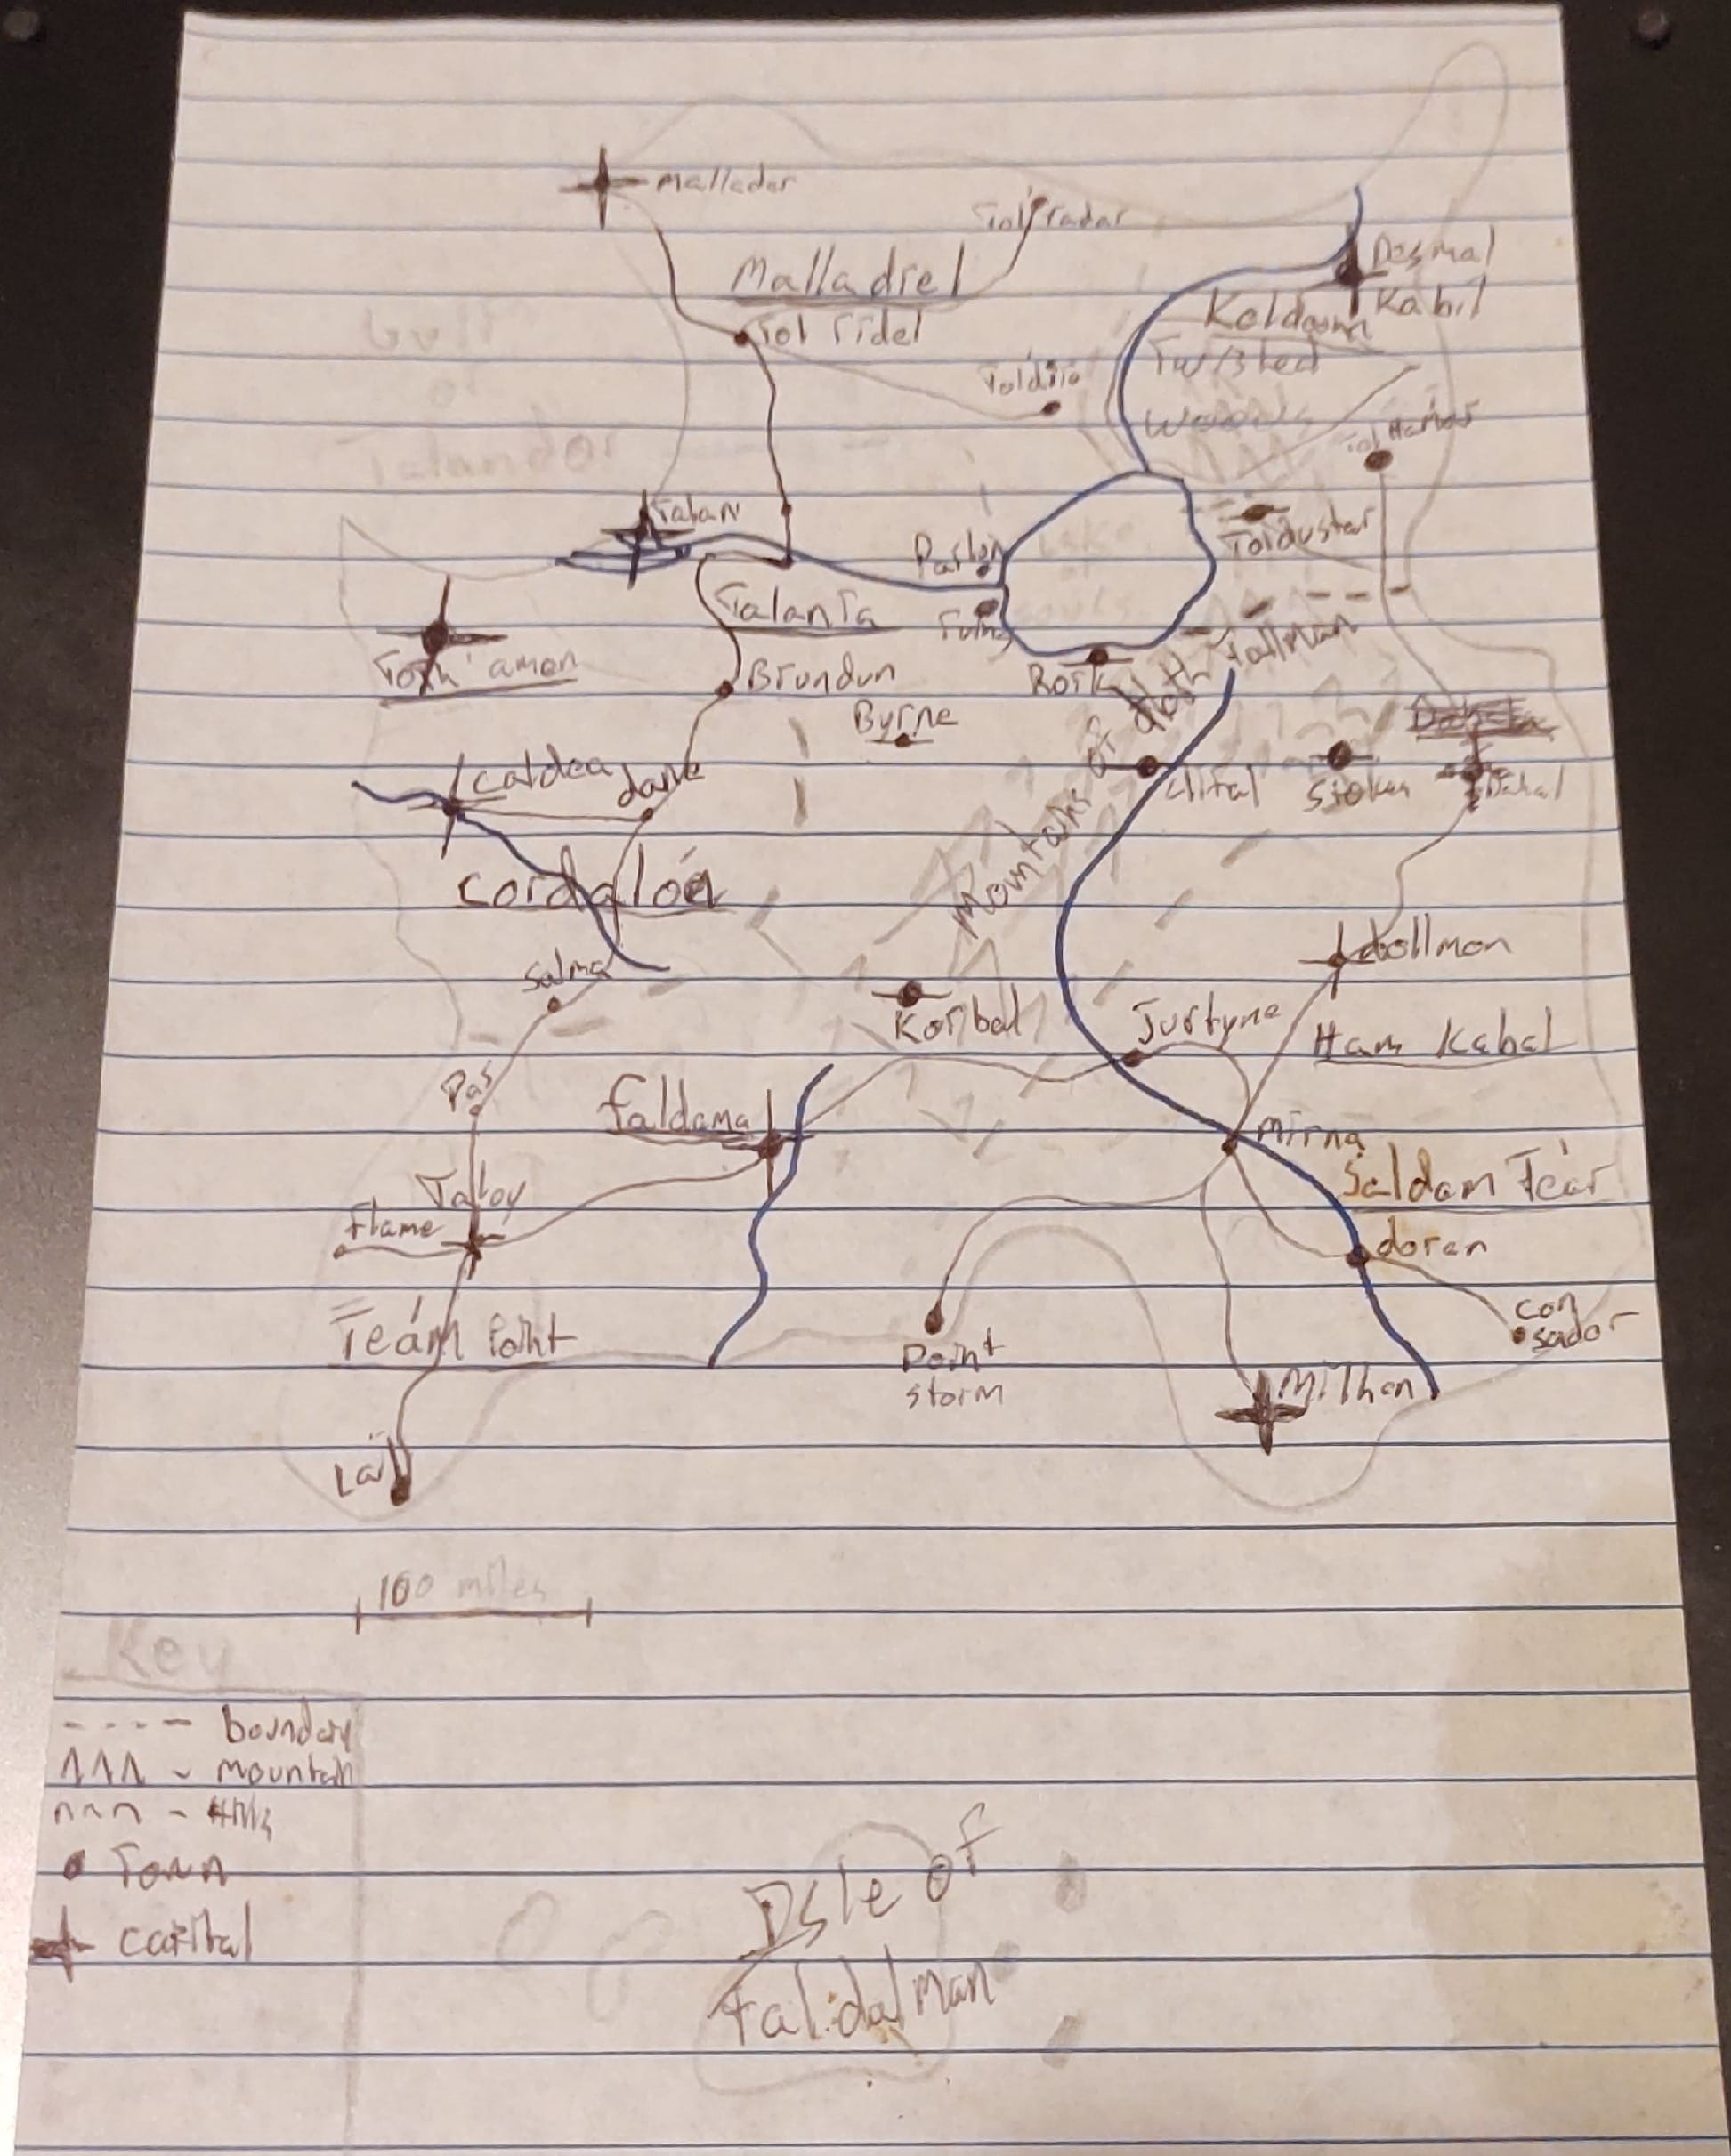 Mallador
Tol'radar
Malladiel
Desmal
Kabil
Koldamn
Gulf
of
Talandor
Tol ridel
Twisted
Woods
Toldiio
Tol Hamar
Talan
Toldustar
Parlon
Lake
of
souls
Talania
Tork'amon
Brundun
Rork
Tallman
Byrne
Mountains of death
caldea
dane
Clital
Stoken
Dahal
cordalóen
Salma
dollmon
Koribal
Jurtyne
Ham Kabal
Das
faldama
mirna
Saldam Teár
Taloy
flame
doren
Teám Point
con
sador
Point
storm
Milhen
Lar
100 miles
Key
---- boundary
ΛΛΛ - mountain
∩∩∩ - Hills
• Town
capital
Isle of
Falidalman